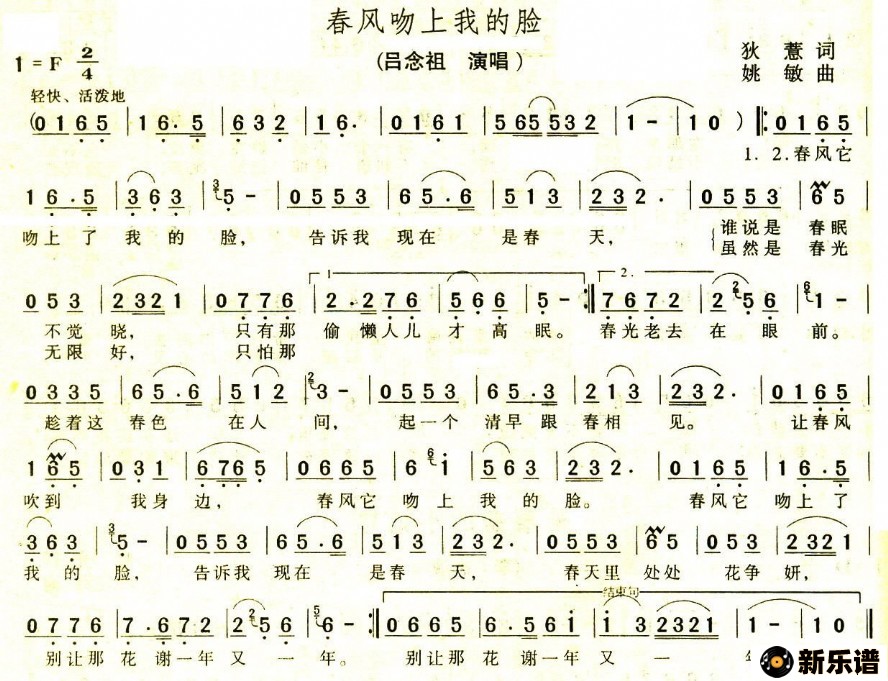 春风吻上我的脸
1=F 2/4
(吕念祖 演唱)
狄薏 词
姚敏 曲
轻快、活泼地
(0 1 6 5 | 1 6·5 | 6 3 2 | 1 6· | 0 1 6 1 | 5 6 5 5 3 2 | 1 - | 1 0 ) ‖: 0 1 6 5 |
1. 2.春风它
1 6·5 | 3 6 3 | 3 5 - | 0 5 5 3 | 6 5·6 | 5 1 3 | 2 3 2· | 0 5 5 3 | 6 5
吻上了 我的脸, 告诉我 现在 是春 天, 谁说是 春眠
虽然是 春光
0 5 3 | 2 3 2 1 | 0 7 7 6 | 1 2·2 7 6 | 5 6 6 | 5 - :‖ 2. 7 6 7 2 | 2 2 5 6 | 6 1 -
不觉晓, 只有那 偷懒人儿 才高眠。 春光老去 在眼前。
无限好, 只怕那
0 3 3 5 | 6 5·6 | 5 1 2 | 2 3 - | 0 5 5 3 | 6 5·3 | 2 1 3 | 2 3 2· | 0 1 6 5
趁着这 春色 在人 间, 起一个 清早跟 春相 见。 让春风
1 6 5 | 0 3 1 | 6 7 6 5 | 0 1 6 5 | 6 6 1 | 5 6 3 | 2 3 2· | 0 1 6 5 | 1 6·5
吹到 我身 边, 春风它 吻上 我的 脸。 春风它 吻上了
3 6 3 | 3 5 - | 0 5 5 3 | 6 5·6 | 5 1 3 | 2 3 2· | 0 5 5 3 | 6 5 | 0 5 3 | 2 3 2 1
我的 脸, 告诉我 现在 是春 天, 春天里 处处 花争 妍,
结束句
0 7 7 6 | 7·6 7 2 | 2 2 5 6 | 5 6 - :‖ 0 6 6 5 | 6·5 6 1 | 1 3 2 3 2 1 | 1 - | 1 0 ‖
别让那 花谢一年 又一 年。 别让那 花谢一年 又 一
新乐谱